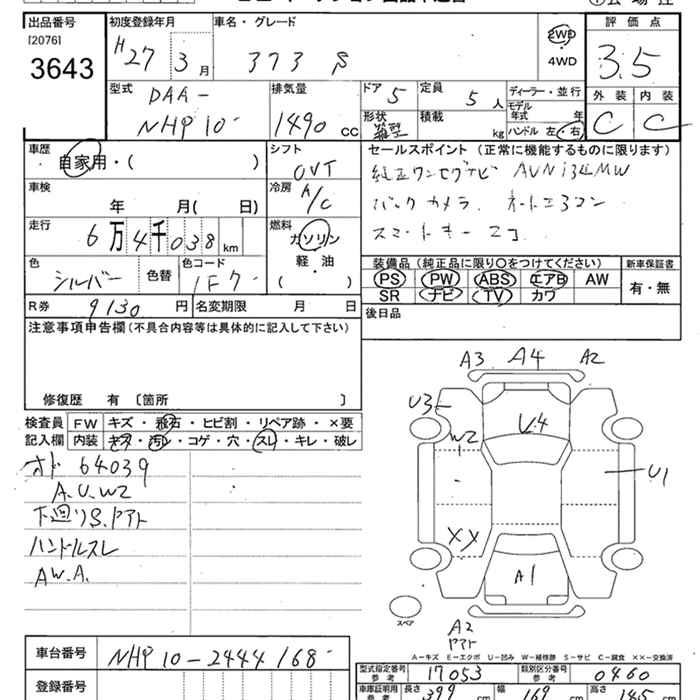 出品番号 初度登録年月 車名・グレード 評価点
[2076]
3643 H27 3月 373 S 2WD 4WD 3.5
型式 排気量 ドア 5 定員 5人 ディーラー・並行 外装 内装
DAA- モデル年式 年
NHP10- 1490 CC 形状 箱型 積載 kg ハンドル 左 右 C C
車歴 シフト セールスポイント (正常に機能するものに限ります)
自家用・( ) CVT 純正ワンセグナビ
車検 冷房
年 月( 日) A/C バックカメラ. オートエアコン
走行 燃料
6万4千038 km ガソリン スマートキー
色 色替 色コード 軽・油 装備品 (純正品に限り○をつけてください) 新車保証書
シルバー 1F7 ( ) PS PW ABS エアB AW 有・無
R券 9130 円 名変期限 月 日 SR ナビ TV カワ
注意事項申告欄(不具合内容等は具体的に記入して下さい) 後日品
修復歴 有 〔箇所 〕
A3 A4 A2
検査員 FW キズ・飛石・ヒビ割・リペア跡・×要
記入欄 内装 キズ・汚レ・コゲ・穴・スレ・キレ・破レ
U3
オド 64039
A.U.W2
下廻りS.アト
ハンドルスレ
AW.A.
W2
U1
XX
A1
スペア
A2
アト
A=キズ E=エクボ U=凹み W=補修跡 S=サビ C=腐食 ××=交換済
車台番号 NHP10-2444168
型式指定番号 参考 17053 類別区分番号 参考 0460
登録番号 車庫証明用 参考 長さ 399 cm 幅 169 cm 高さ 145 cm